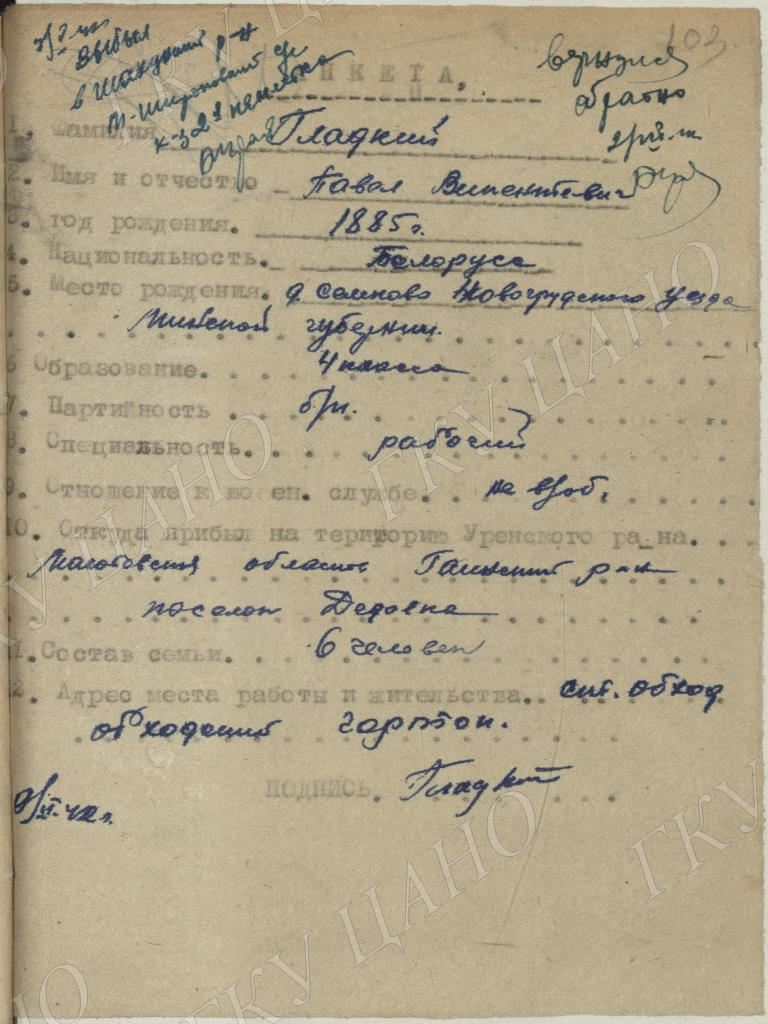 103
выбыл
в Шахунский р-н
вернулся
обратно
АНКЕТА.
1. Фамилия Гладкий
2. Имя и отчество Павел Викентевич
3. год рождения. 1885 г.
4. Национальность. Белорус
5. Место рождения. д. Сенново Новогрудского уезда
Минской губернии.
6 Образование. 4 класса
7. Партийность б/п.
8. Специальность. рабочий
9. Отношение к во ен. службе. не взоб.
10. Откуда прибыл на територию Уренского ра_на.
Молотовския область Гаинский р-н
поселок Дедовка
11. Состав семьи. 6 человек
12. Адрес места работы и жительства.. обход
обходчий
ПОДПИСЬ. Гладкий
ГКУ ЦАНО